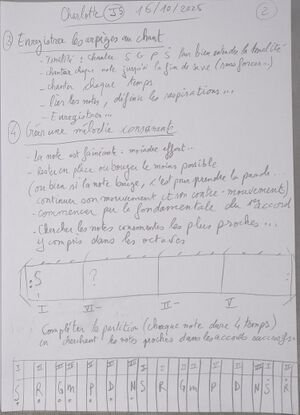 Charlotte (JS) 16/10/2025 (2)
③ Enregistrer les arpèges au chant
- Tonalité : chanter S G P Ṡ pour bien entendre la tonalité
- chanter chaque note jusqu'à la fin de (sans forcer...)
- chanter chaque temps
- lier les notes, définir les respirations...
- Enregistrer...
④ Créer une mélodie consonante
- La note est fainéante - moindre effort...
- Rester en place ou bouger le moins possible
(ou bien si la note bouge, c'est pour prendre la
continuer son mouvement et son contre-mouvement)
- commencer par la fondamentale du 1er accord
- Chercher les notes consonantes les plus proches...
y compris dans les octaves
S ?
I VI- II- V
Compléter la partition (chaque note dure 4 temps)
en cherchant les notes proches dans les accords successifs
S R G m P D N S R G m P D N Ṡ Ṙ